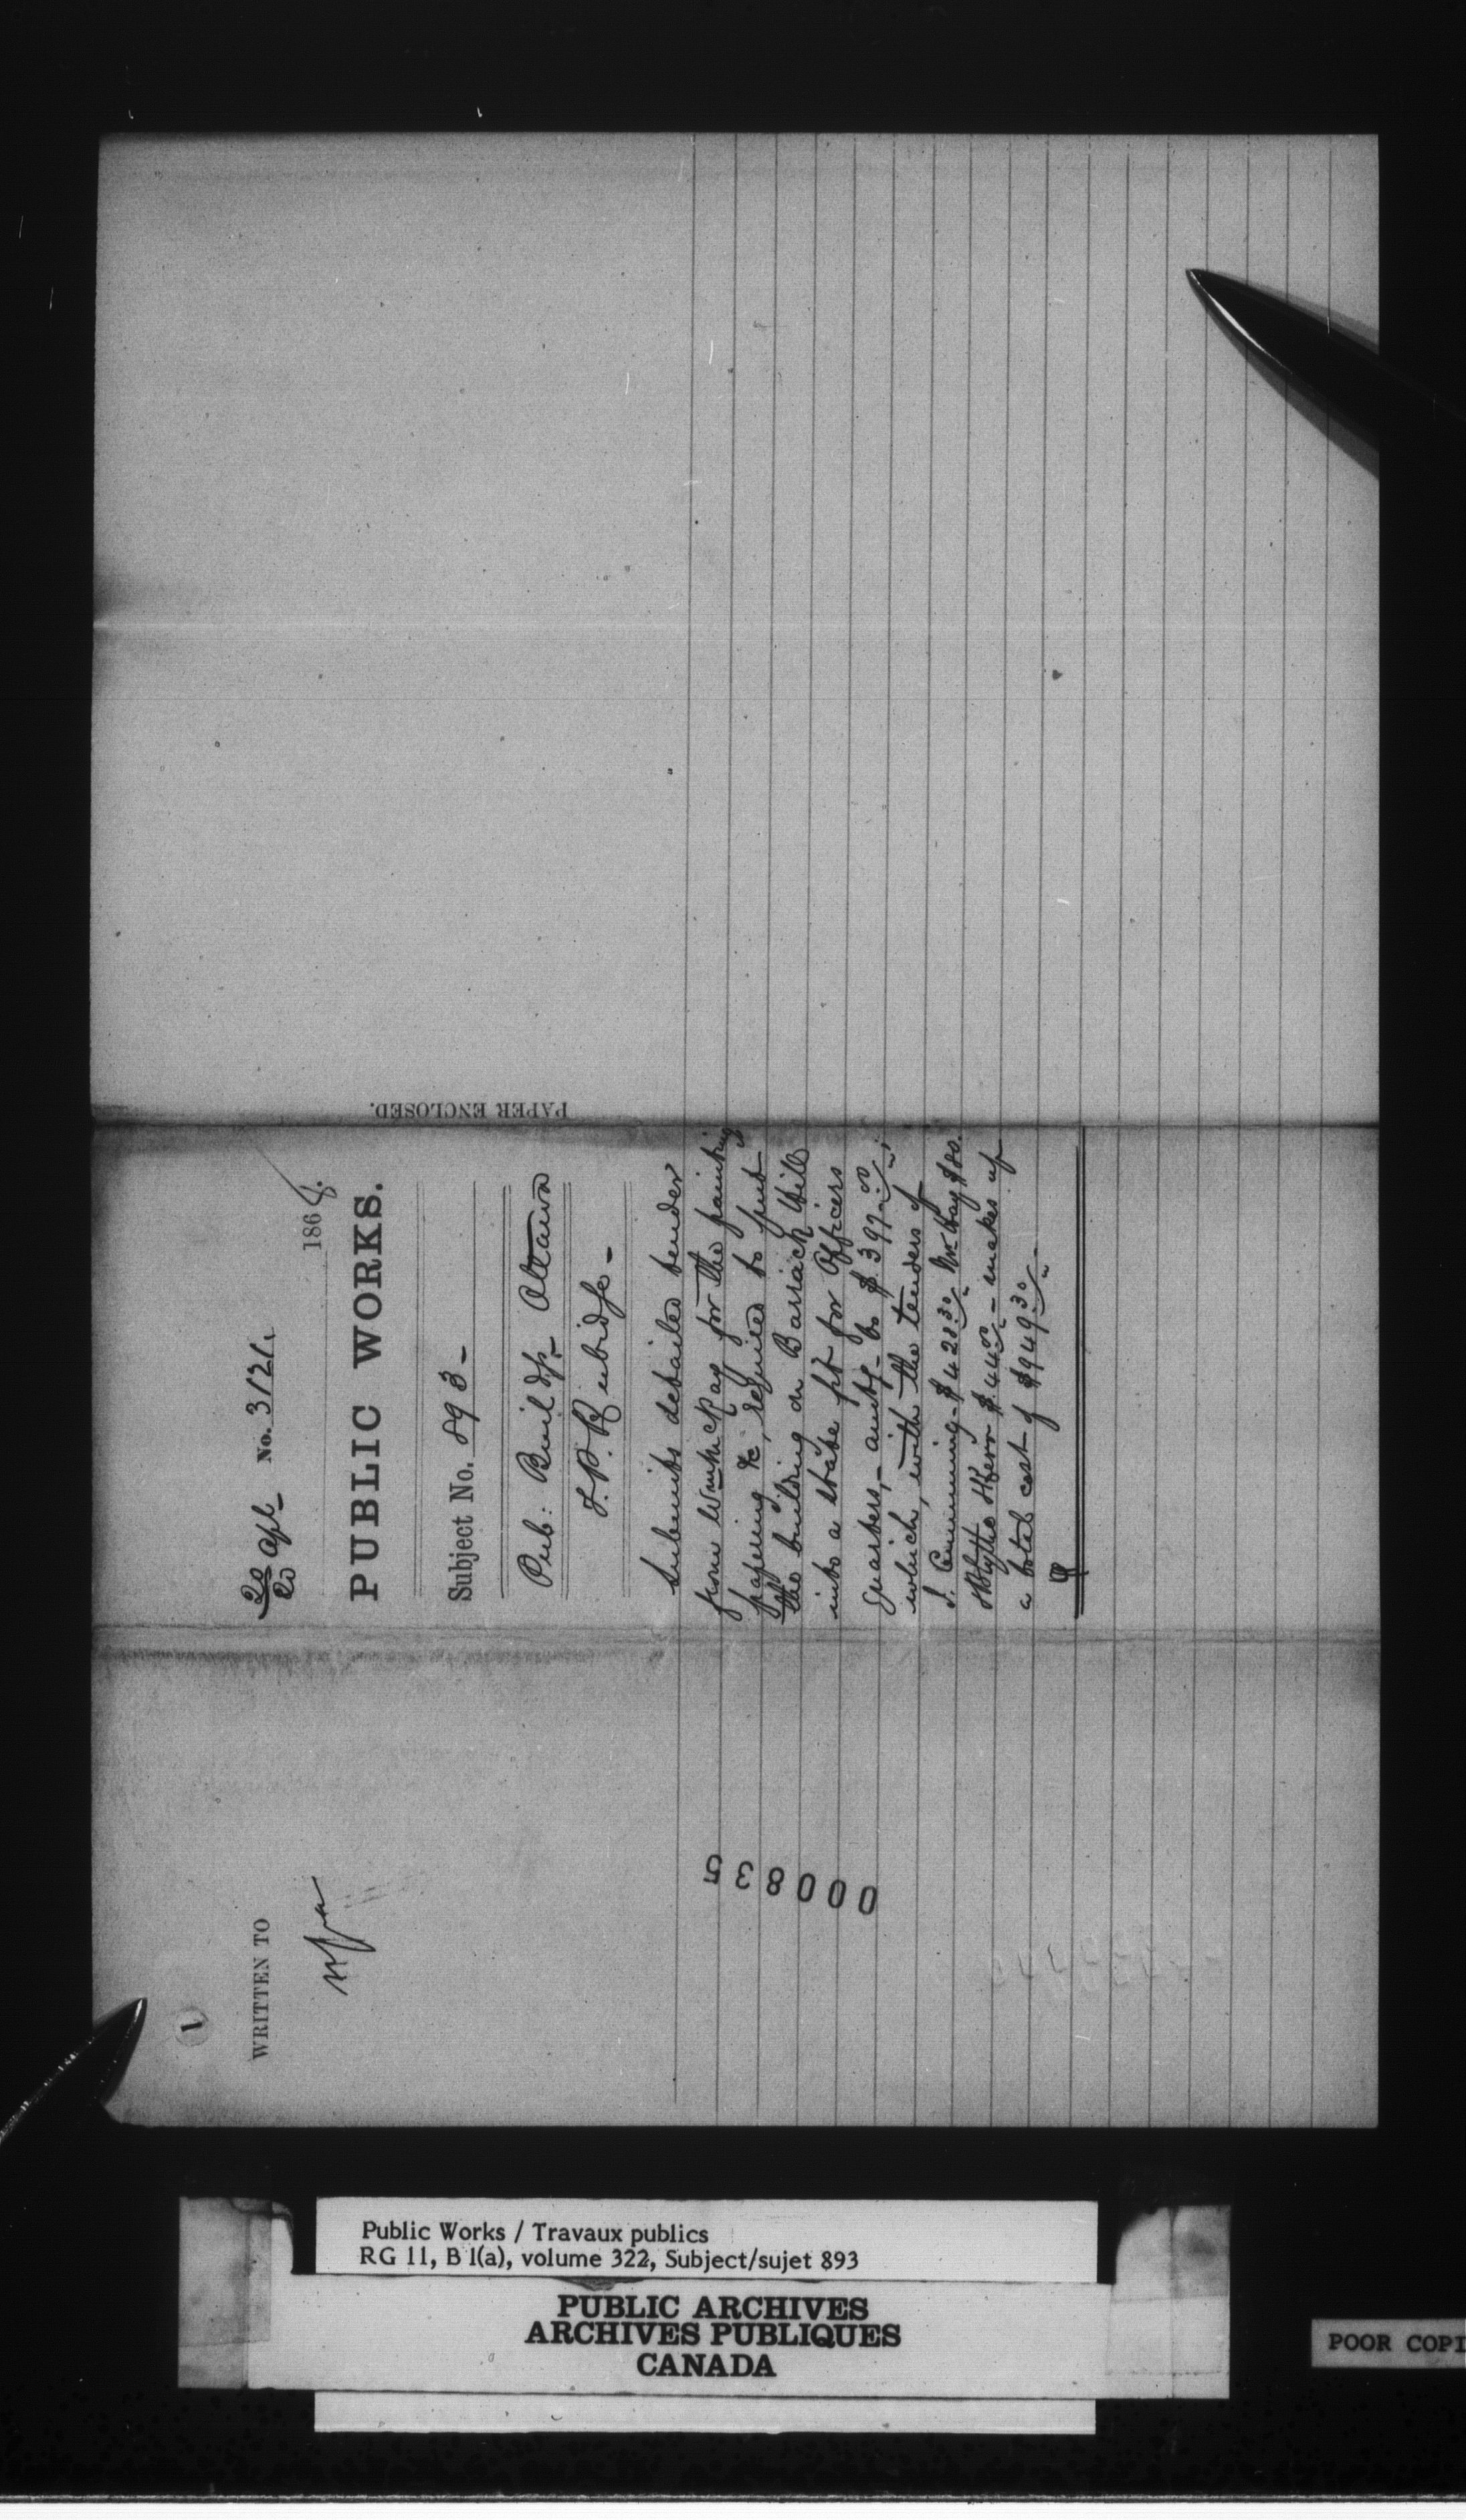 20 Apl - No. 3121.
20
1868.
PUBLIC WORKS.
Subject No. 893 -
Pub: Buildgs - Ottawa
F. P. Rubidge -
Submits detailed tender
from Wm McKay for the painting
papering &c, required to put
the building on Barrack Hill
into a state fit for Officers
Quarters, - amtg. to $397.00;
which, with the tenders of
J. Cumming - $428.30 McKay $80.
Blyth & Kerr $.44.00 - makes up
a total cost of $949.30 -
PAPER ENCLOSED.
WRITTEN TO
1
000835
Public Works / Travaux publics
RG 11, B 1(a), volume 322, Subject/sujet 893
PUBLIC ARCHIVES
ARCHIVES PUBLIQUES
CANADA
POOR COPI